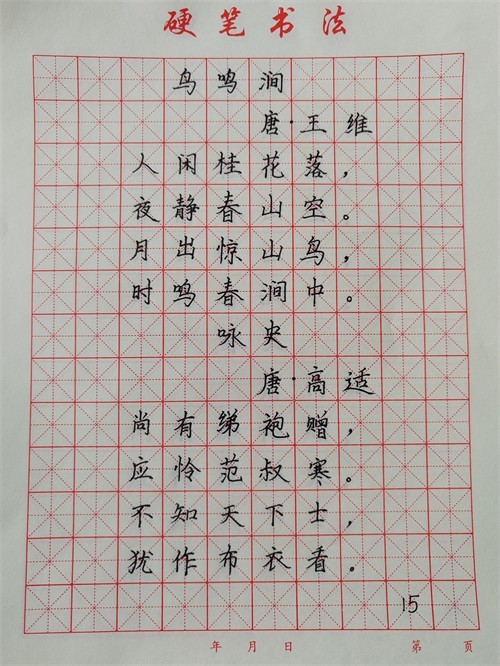 硬笔书法
鸟鸣涧
唐·王维
人闲桂花落，
夜静春山空。
月出惊山鸟，
时鸣春涧中。
咏史
唐·高适
尚有绨袍赠，
应怜范叔寒。
不知天下士，
犹作布衣看。
15
年 月 日 第 页